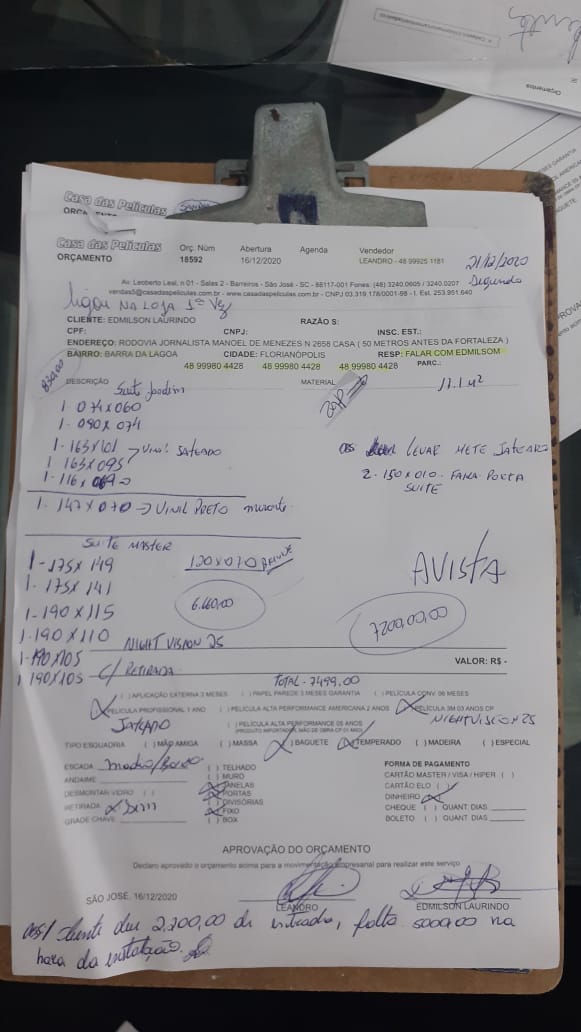 Orçamentos
Casa das Películas
Casa das Películas
ORÇAMENTO
Orç. Núm Abertura Agenda Vendedor
18592 16/12/2020 LEANDRO - 48 99925 1181
21/12/2020
Segunda
Av. Leoberto Leal, n 01 - Salas 2 - Barreiros - São José - SC - 88117-001 Fones: (48) 3240.0605 / 3240.0207
vendas5@casadaspeliculas.com.br - www.casadaspeliculas.com.br - CNPJ 03.319.178/0001-98 - I. Est. 253.951.640
ligou NA LOJA 1ª Vez
CLIENTE: EDMILSON LAURINDO RAZÃO S:
CPF: CNPJ: INSC. EST.:
ENDEREÇO: RODOVIA JORNALISTA MANOEL DE MENEZES N 2658 CASA ( 50 METROS ANTES DA FORTALEZA )
BAIRRO: BARRA DA LAGOA CIDADE: FLORIANÓPOLIS RESP: FALAR COM EDMILSOM
48 99980 4428 48 99980 4428 48 99980 4428 PARC.:
DESCRIÇÃO Suite Jardim MATERIAL 11.1 M²
1 074X060
1 - 090 X 074
1 - 163X101 → VINIL JATEADO
1 163X095
1 - 116 X
OBS LEVAR METE JATEADO
2 - 150X010 - FAIXA PORTA
SUITE
1 - 147X070 → VINIL PRETO
SUITE MASTER
1 - 175X149 120X070 BRINDE
1 - 175X141
1 - 190X115 6.660,00
1 - 190X110 NIGHT VISION 25
1 - 190X105
1 190X105 C/ RETIRADA
AVISTA
7200,00
VALOR: R$ -
TOTAL - 7499,00
( ) APLICAÇÃO EXTERNA 3 MESES ( ) PAPEL PAREDE 3 MESES GARANTIA ( ) PELÍCULA CONV. 06 MESES
(X) PELÍCULA PROFISSIONAL 1 ANO ( ) PELÍCULA ALTA PERFORMANCE AMERICANA 2 ANOS (X) PELÍCULA 3M 03 ANOS CP
JATEADO ( ) PELÍCULA ALTA PERFORMANCE 05 ANOS NIGHTVISION 25
(PRODUTO IMPORTADOR, MÃO DE OBRA CP 01 ANO)
TIPO ESQUADRIA ( ) MÃO AMIGA ( ) MASSA (X) BAGUETE (X) TEMPERADO ( ) MADEIRA ( ) ESPECIAL
ESCADA ( ) TELHADO FORMA DE PAGAMENTO
ANDAIME ( ) MURO CARTÃO MASTER / VISA / HIPER ( )
(X) JANELAS CARTÃO ELO ( )
DESMONTAR VIDRO ( ) (X) PORTAS DINHEIRO (X)
RETIRADA X Sim ( ) DIVISÓRIAS CHEQUE ( ) QUANT. DIAS
(X) FIXO
GRADE CHAVE ( ) BOX BOLETO ( ) QUANT. DIAS
APROVAÇÃO DO ORÇAMENTO
Declaro aprovado o orçamento acima para a movimentação empresarial para realizar este serviço
SÃO JOSE, 16/12/2020 LEANDRO EDMILSON LAURINDO
obs/ cliente deu 2.200,00 de entrada, falta 5000,00 na
hora da instalação.